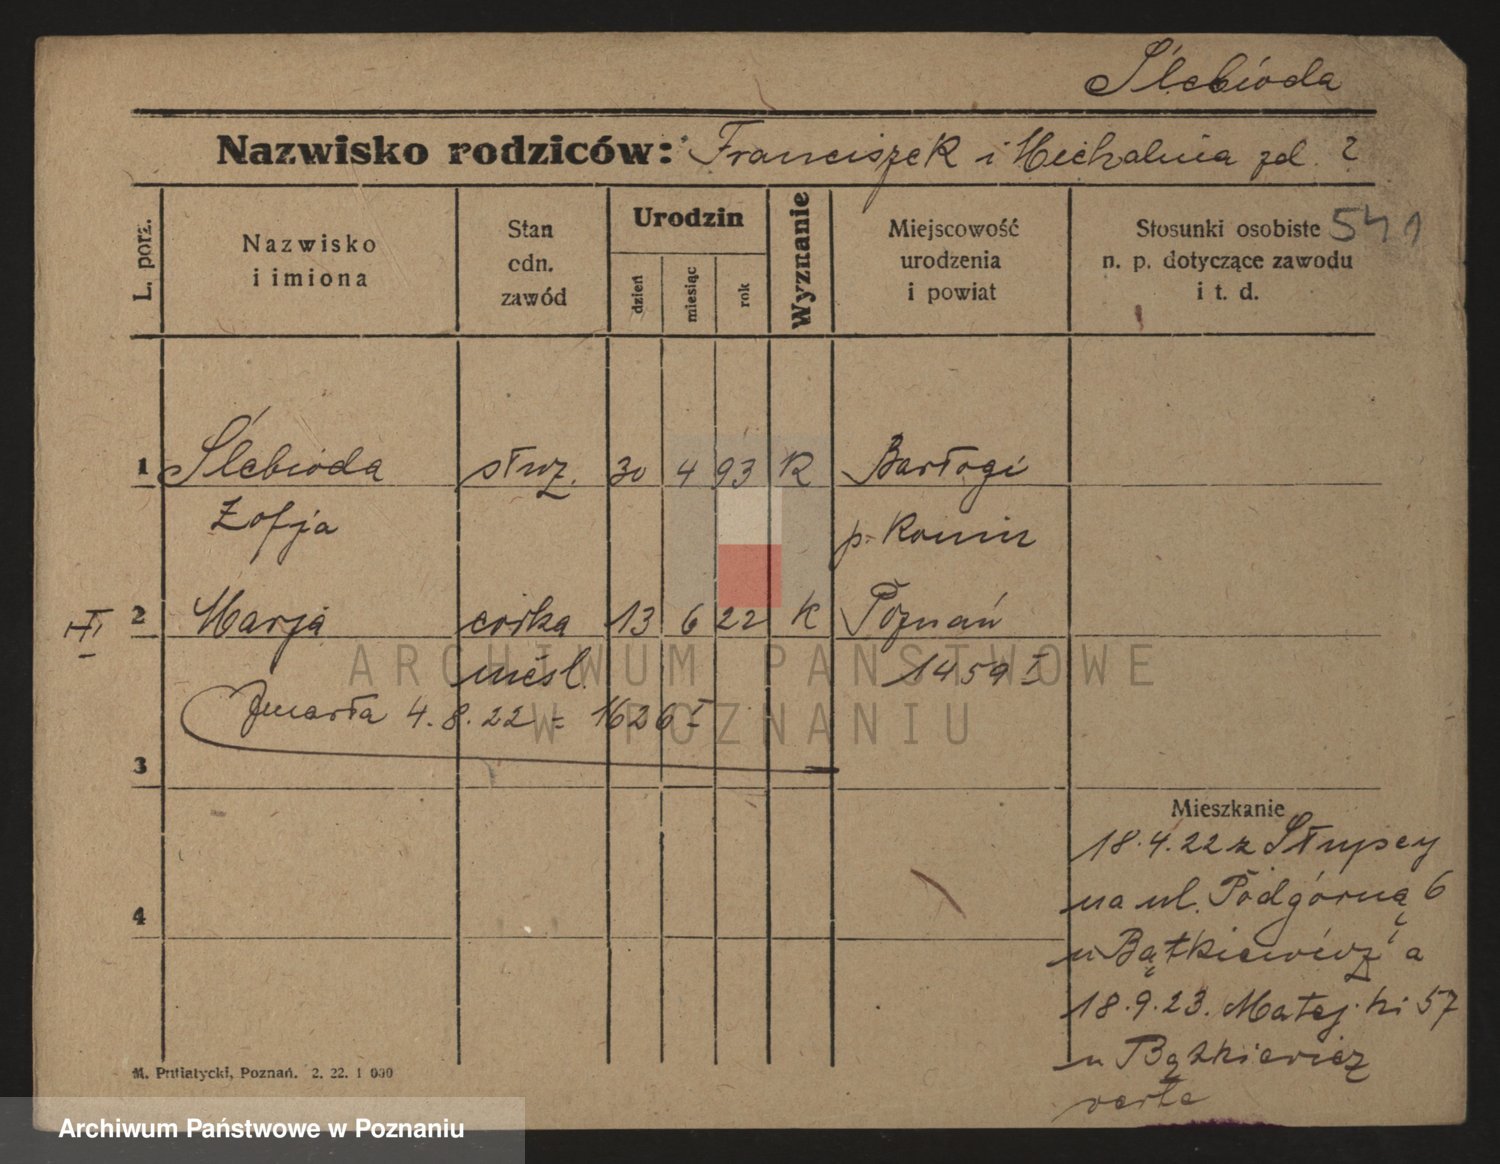 Ślebioda
Nazwisko rodziców: Franciszek i Michalina zd. ?
541
L. porz.
Nazwisko
i imiona
Stan
cdn.
zawód
Urodzin
dzień
miesiąc
rok
Wyznanie
Miejscowość
urodzenia
i powiat
Stosunki osobiste
n. p. dotyczące zawodu
i t. d.
1 Ślebioda służ. 30 4 93 K Barłogi
Zofja p. Konin
2 Marja córka 13 6 22 K Poznań
nieśl. 1459 I
Zmarła 4.8.22 = 1626 I
3
Mieszkanie
18.4.22 z Słupcy
na ul. Podgórną 6
u Bątkiewicz'a
18.9.23. Matejki 57
u Bątkiewicz
4
M. Putiatycki, Poznań. 2. 22. 1 000
ARCHIWUM PAŃSTWOWE
W POZNANIU
Archiwum Państwowe w Poznaniu